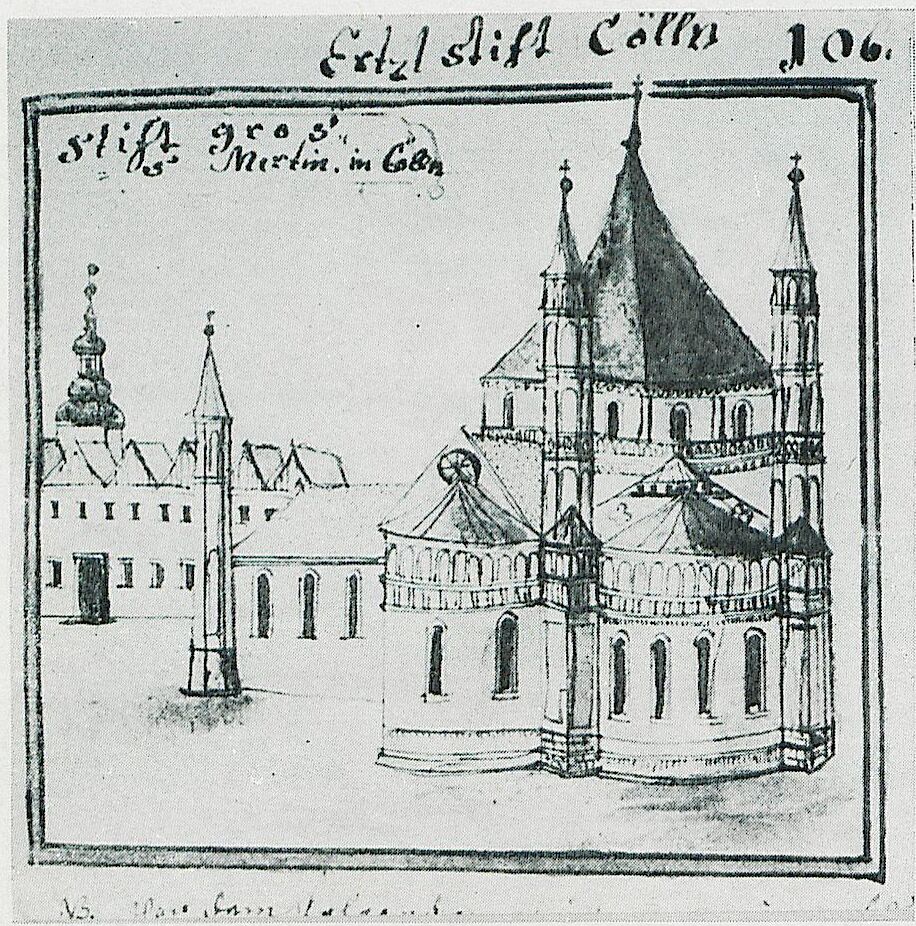 Ertzl stift Cölln 106.
stift gros
S' Mertin. in Cölln
NB.